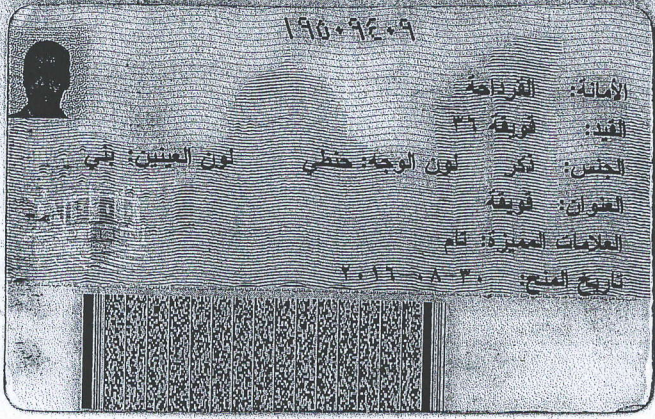 ١٩٥٠٩٤٠٩
الأمانة: القرداحة
القيد: قويقة ٣٦
الجنس: ذكر لون الوجه: حنطي لون العينين: بني
العنوان: قويقة
العلامات المميزة: تام
تاريخ المنح: ٣٠-٠٨-٢٠١٦